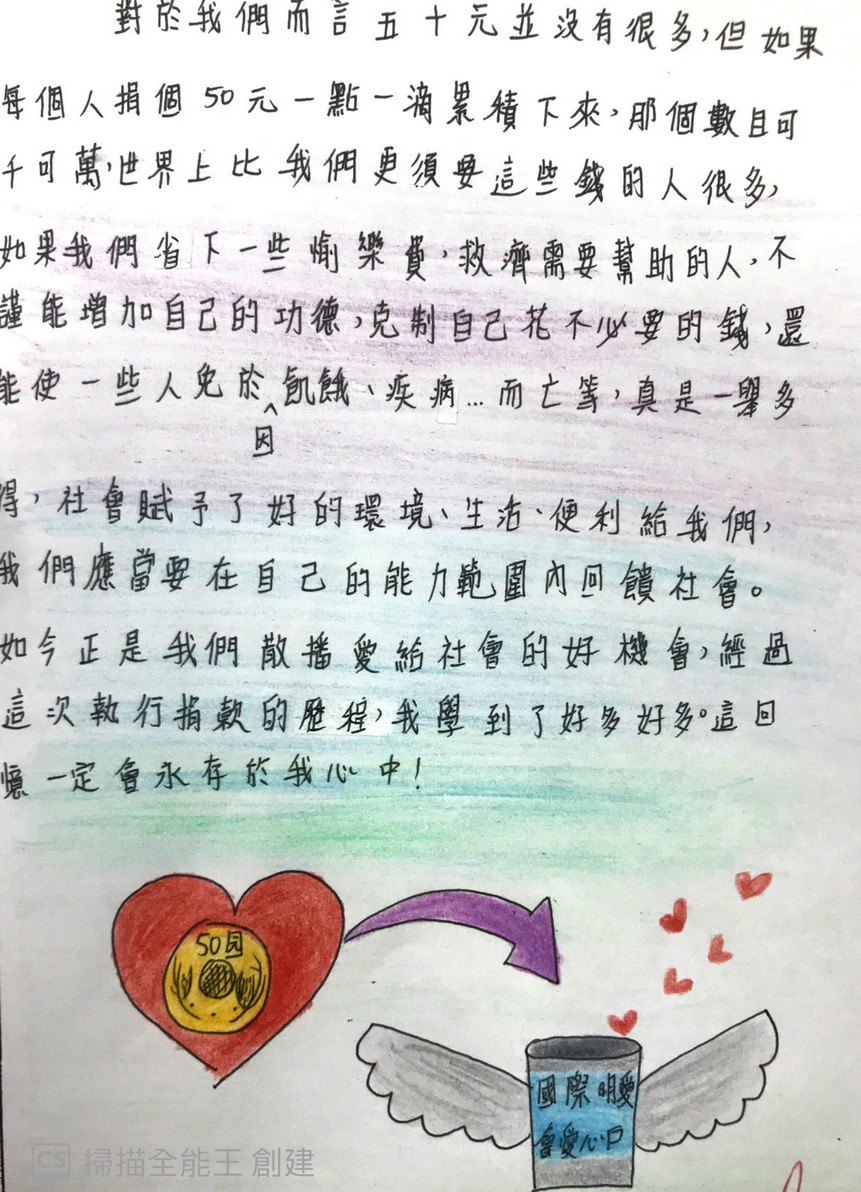 對於我們而言五十元並沒有很多，但如果
每個人捐個50元一點一滴累積下來，那個數目可
千可萬，世界上比我們更須要這些錢的人很多，
如果我們省下一些愉樂費，救濟需要幫助的人，不
謹能增加自己的功德，克制自己花不必要的錢，還
能使一些人免於飢餓、疾病…而亡等，真是一舉多
^因
得，社會賦予了好的環境、生活、便利給我們，
我們應當要在自己的能力範圍內回饋社會。
如今正是我們散播愛給社會的好機會，經過
這次執行捐款的歷程，我學到了好多好多。這回
憶一定會永存於我心中！
50圓
國際明愛
會愛心戶
CS 掃描全能王 創建